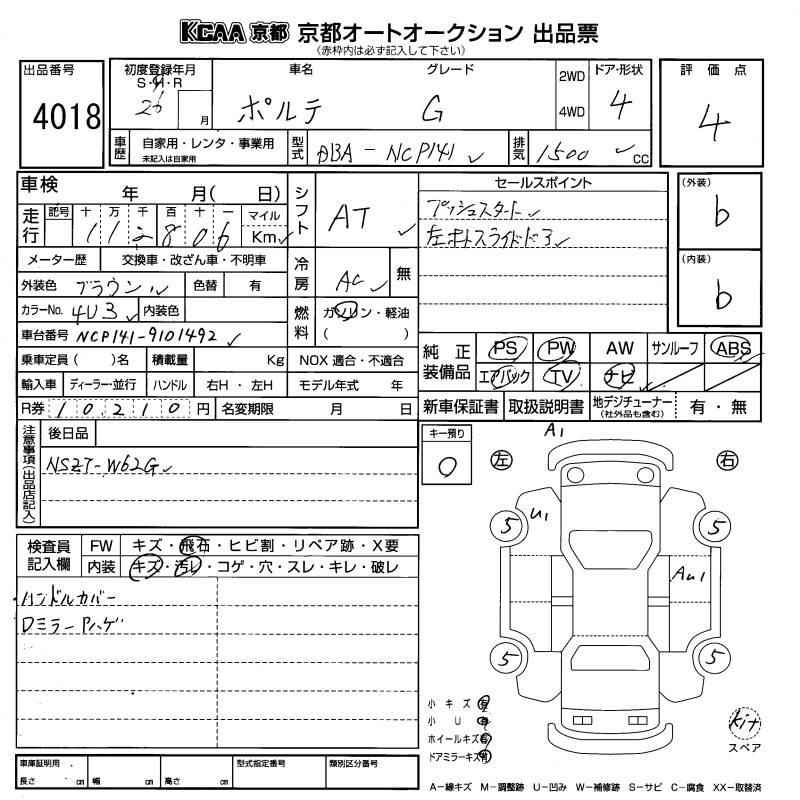 KCAA 京都 京都オートオークション 出品票
(赤枠内は必ず記入して下さい)
出品番号
4018
初度登録年月
S・H・R
26 月
車名
ポルテ
グレード
G
2WD
4WD
ドア・形状
4
評価点
4
車歴
自家用・レンタ・事業用
未記入は自家用
型式
DBA-NCP141
排気
1500 cc
車検 年 月( 日)
走行
記号 十 万 千 百 十 一
112806
マイル
Km
シフト
AT
メーター歴
交換車・改ざん車・不明車
冷房
AC
無
外装色
ブラウン
色替
有
カラーNo.
4U3
内装色
燃料
ガソリン・軽油
( )
車台番号
NCP141-9101492
乗車定員 ( )名
積載量 Kg
NOX 適合・不適合
輸入車
ディーラー・並行
ハンドル
右H・左H
モデル年式 年
R券
10,210円
名変期限 月 日
セールスポイント
プッシュスタート
左オートスライドドア
(外装)
b
(内装)
b
純正装備品
PS PW AW サンルーフ ABS
エアバック TV ナビ
新車保証書
取扱説明書
地デジチューナー
(社外品も含む)
有・無
注意事項(出品店記入)
後日品
NSZT-W62G
キー預り
0
A1
左
右
U1
5
5
AU1
5
5
検査員記入欄
FW
キズ・飛石・ヒビ割・リペア跡・X要
内装
キズ・汚レ・コゲ・穴・スレ・キレ・破レ
ハンドルカバー
DミラーPハゲ
小キズ 有
小U 有
ホイールキズ 有
ドアミラーキズ 有
Kit
スペア
車庫証明用
長さ cm
幅 cm
高さ cm
型式指定番号
類別区分番号
A-線キズ M-調整跡 U-凹み W-補修跡 S-サビ C-腐食 XX-取替済